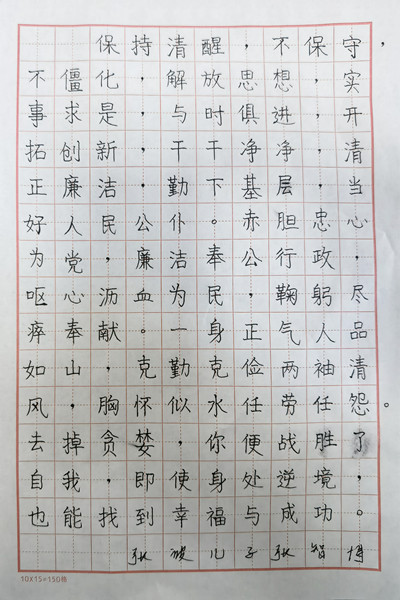 保持清醒，不保守，
不僵化，解放思想，实
事求是，与时俱进，开
拓创新，干干净净，清
正廉洁，勤下基层，当
好人民公仆。赤胆忠心，
为党，廉洁奉公行政，
呕心沥血为民，鞠躬尽
瘁奉献。一身正气人品
如山，克勤克俭两袖清
风，胸怀似水任劳任怨。
去掉贪婪，你便战胜了
自我，即使身处逆境，
也能找到幸福与成功。
张儿子张智博
10X15=150格